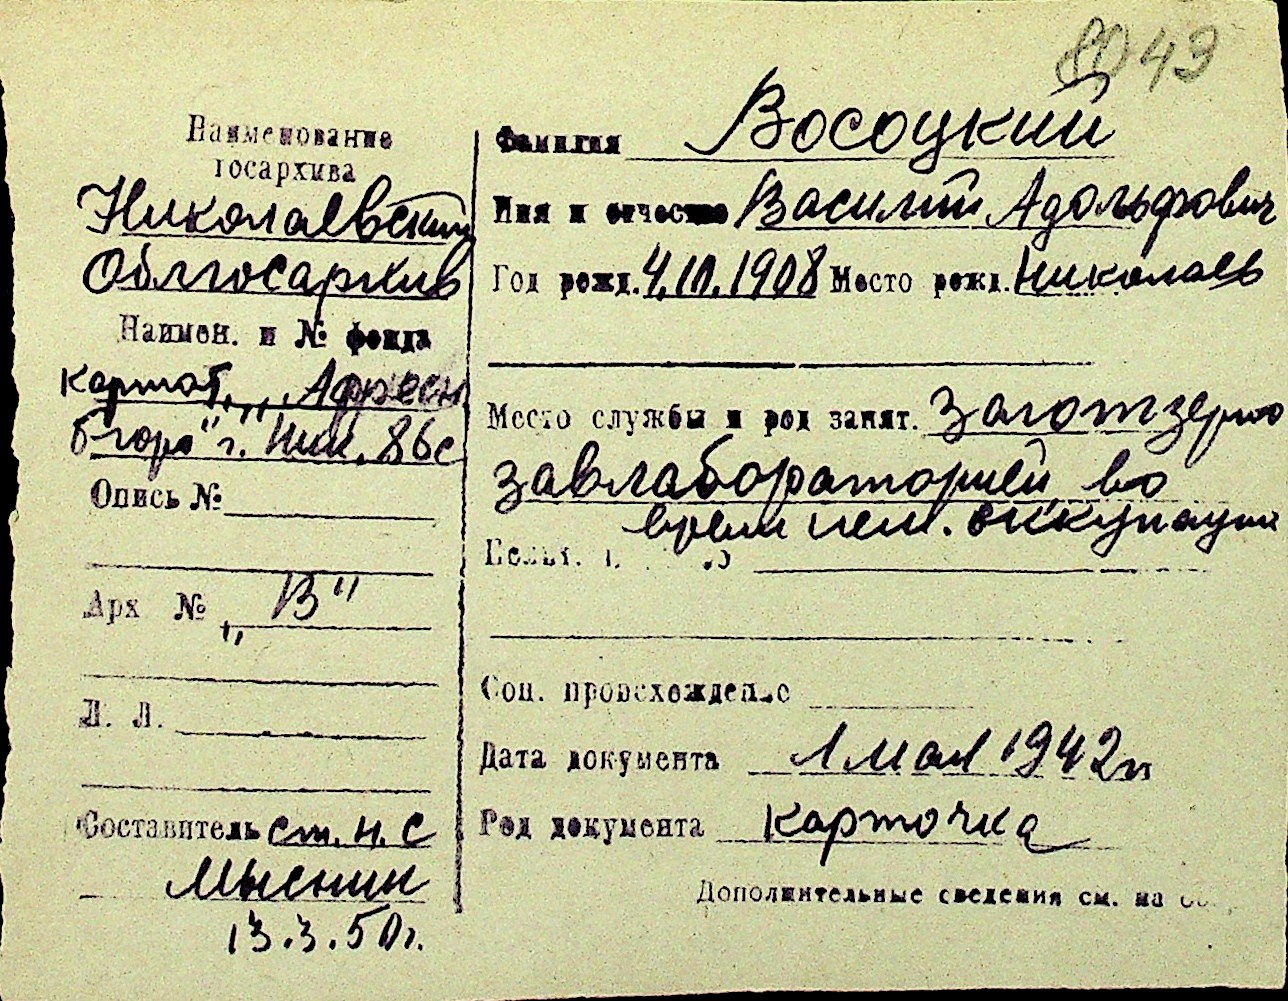 8043
Наименование
госархива
Николаевский
Облгосархив
Наимен. и № фонда
картот. „Адресн
бюро" г. Ник. 86с
Опись №
Арх №
„В"
Л. Л.
Составитель ст. н. с
Мысник
13.3.50г.
Фамилия Восоцкий
Имя и отчество Василий Адольфович
Год рожд. 4.10.1908 Место рожд. Николаев
Место службы и род занят. Заготзерно
завлабораторией во
время нем. оккупации
Соц. происхождение
Дата документа 1 мая 1942г
Род документа карточка
Дополнительные сведения см. на